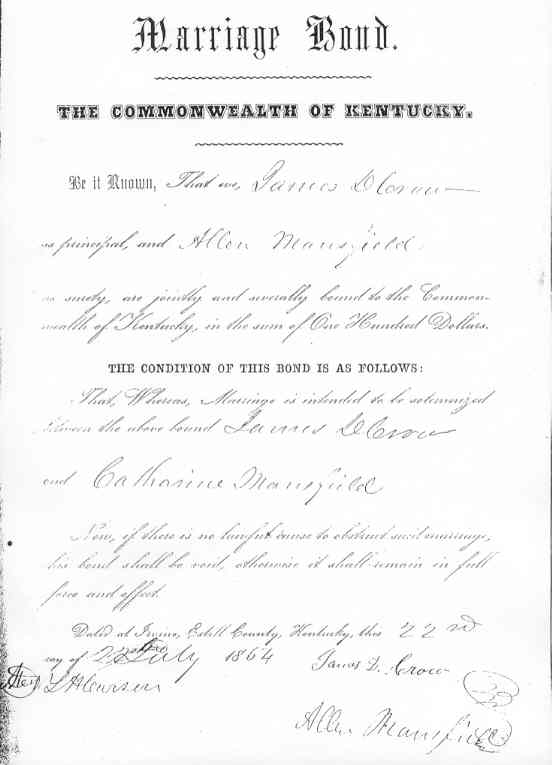 Marriage Bond.
THE COMMONWEALTH OF KENTUCKY.
Be it Known, That we, James D Crow
as principal, and Allen Mansfield
as surety, are jointly and severally bound to the Common-
wealth of Kentucky, in the sum of One Hundred Dollars.
THE CONDITION OF THIS BOND IS AS FOLLOWS:
That, Whereas, Marriage is intended to be solemnized
between the above bound James D Crow
and Catharine Mansfield
Now, if there is no lawful cause to obstruct said marriage,
this bond shall be void, otherwise it shall remain in full
force and effect.
Dated at Irvine, Estill County, Kentucky, this 22nd
day of July 1864 James D. Crow
Allen Mansfield